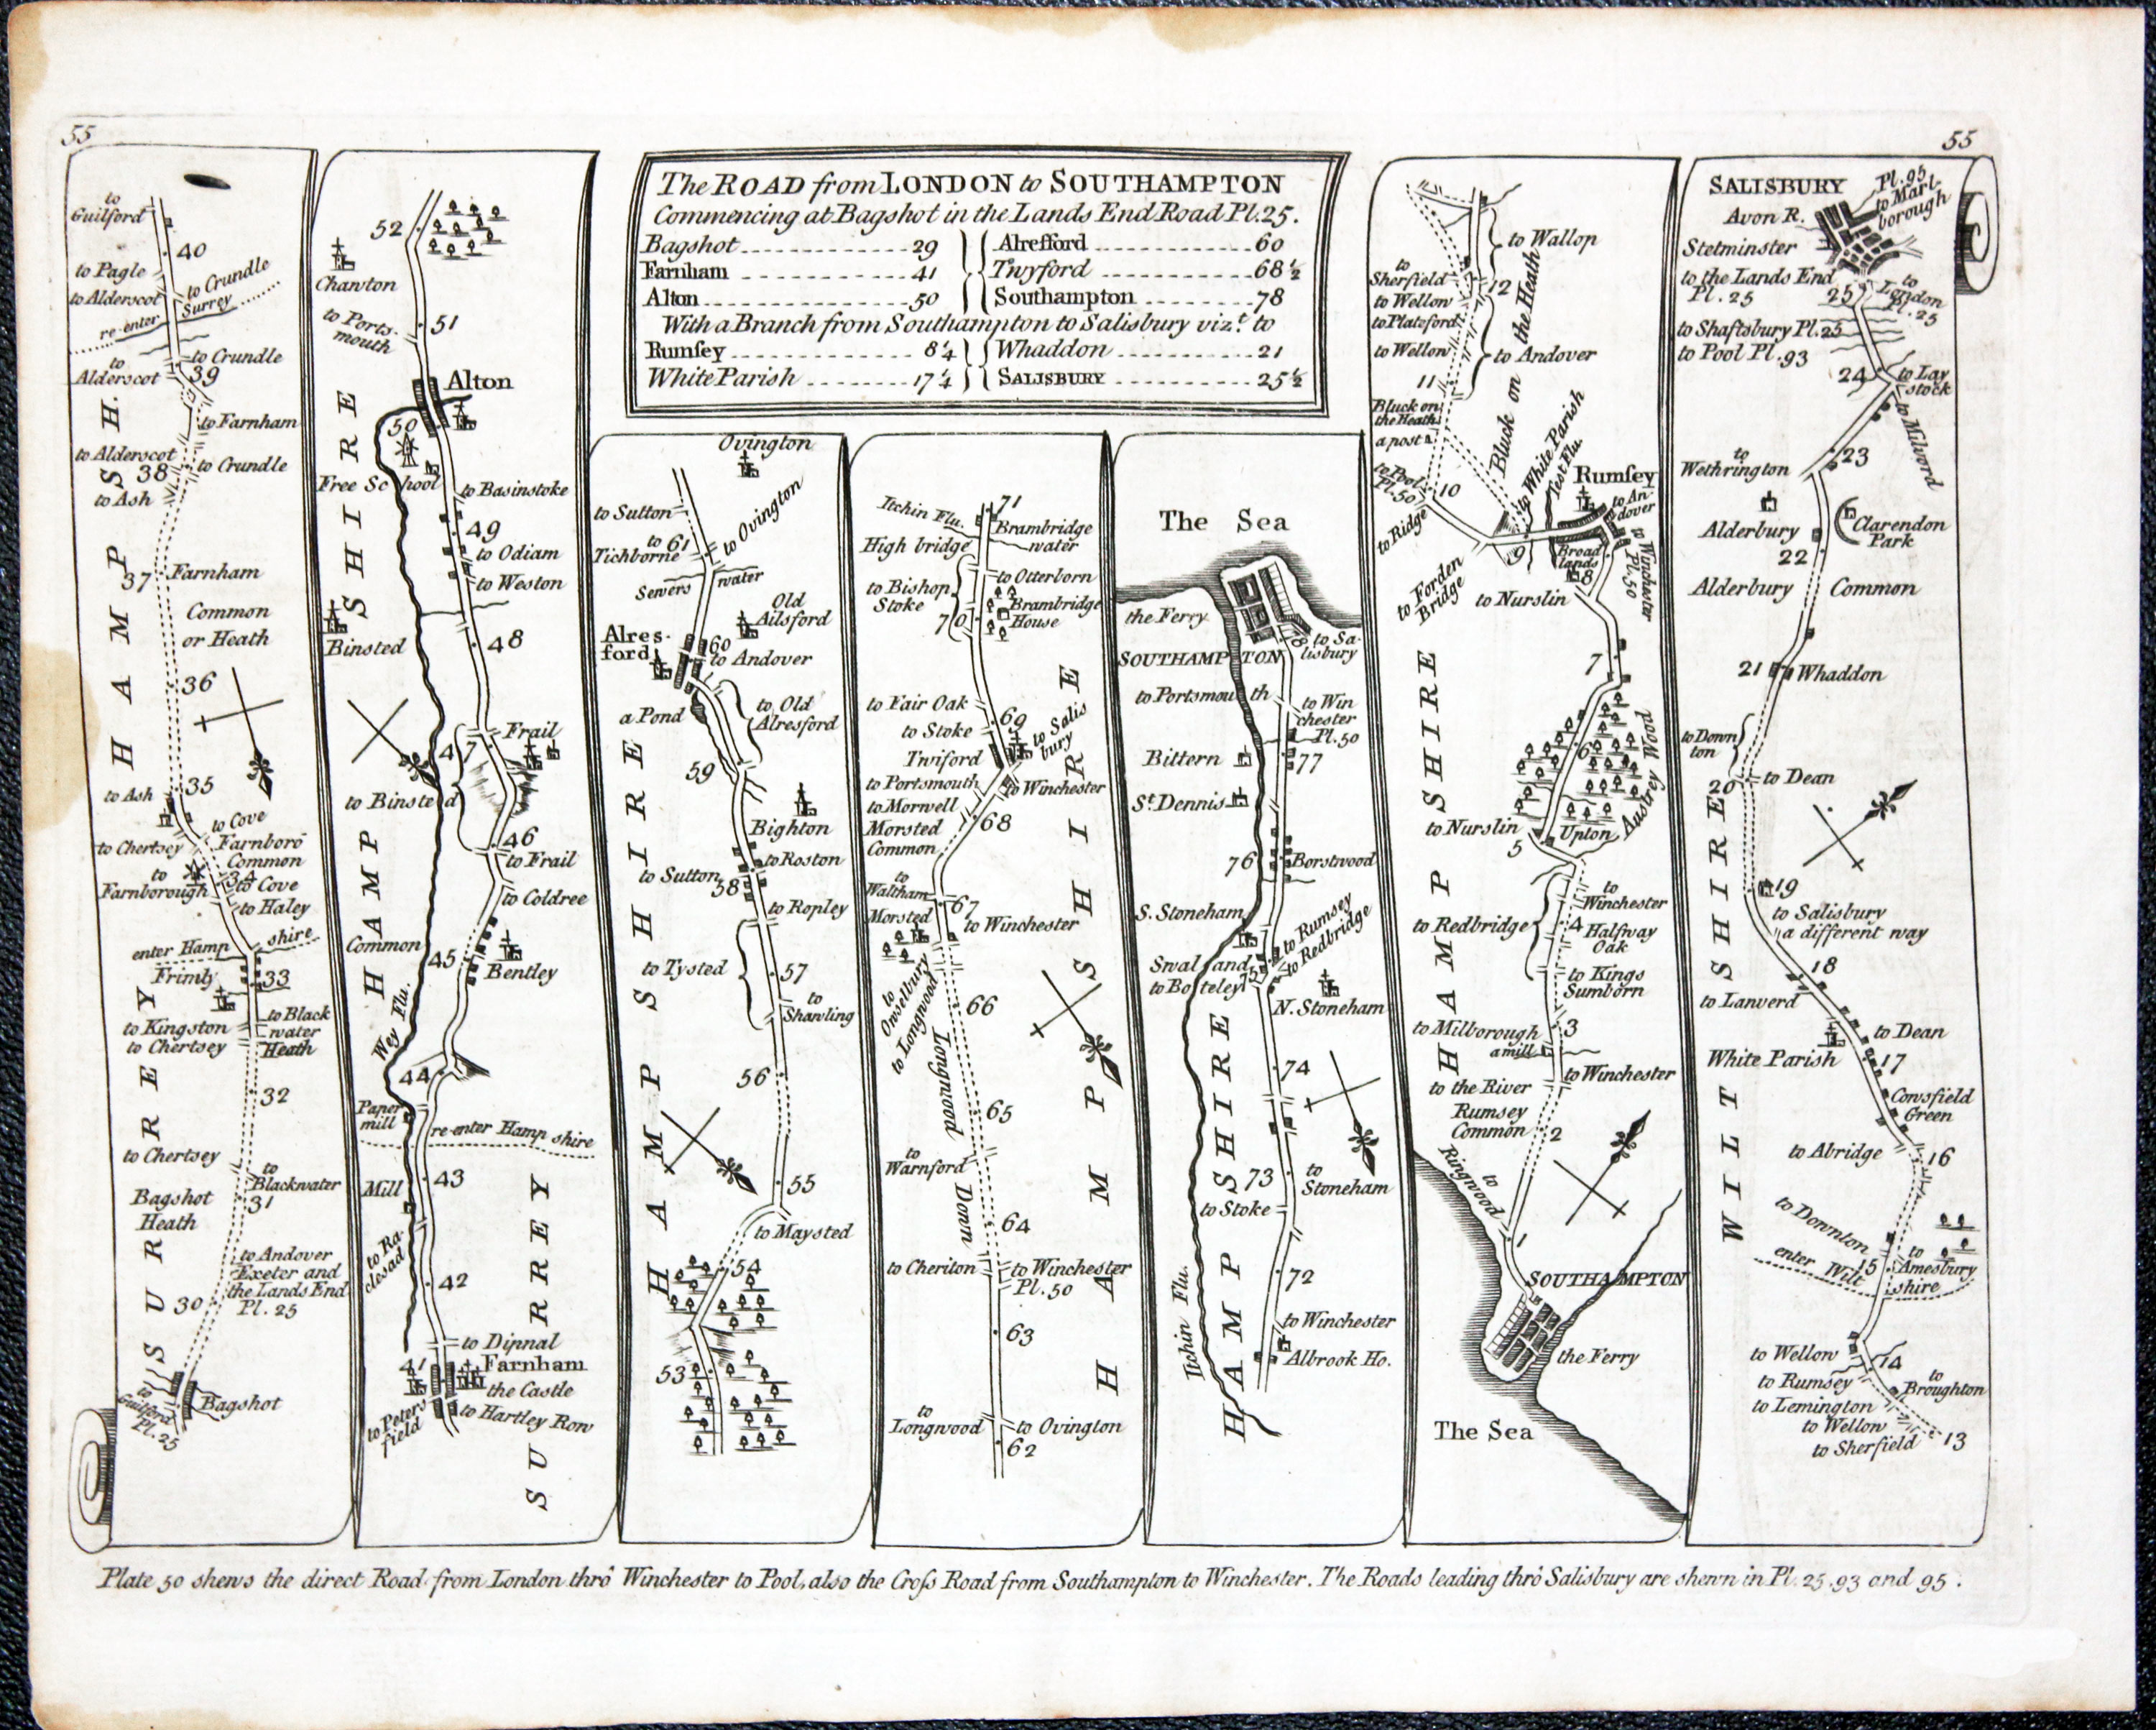 55
55
The ROAD from LONDON to SOUTHAMPTON
Commencing at Bagshot in the Lands End Road Pl. 25.
Bagshot 29
Farnham 41
Alton 50
Alresford 60
Twyford 68½
Southampton 78
With a Branch from Southampton to Salisbury viz.t to
Rumsey 8¼
White Parish 17¼
Whaddon 21
SALISBURY 25½
to Guilford
40
to Pagle
to Crundle
to Alderscot
Surrey
re-enter
to Crundle
to Alderscot
39
to Farnham
to Alderscot
38
to Crundle
to Ash
37
Farnham
Common
or Heath
HAMPSH.
36
35
to Ash
to Cove
to Chertsey
Farnboro
Common
to Farnborough
34
to Cove
to Haley
enter Hampshire
Frimly
33
to Kingston
to Black
water
to Chertsey
Heath
32
SURREY
to Chertsey
to Blackwater
31
Bagshot
Heath
to Andover
Exeter and
the Lands End
Pl. 25
30
to Guilford
Pl. 25
Bagshot
52
Chawton
to Ports-
mouth
51
Alton
50
Free School
to Basinstoke
49
to Odiam
to Weston
HAMPSHIRE
Binsted
48
Frail
47
to Binsted
46
to Frail
to Coldree
Common
45
Bentley
Wey Flu.
44
Paper
mill
re-enter Hampshire
43
Mill
to Ra-
clesad
42
SURREY
to Dipnal
41
Farnham
the Castle
to Peters
field
to Hartley Row
Ovington
to Sutton
to Ovington
61
to
Tichborne
Sewers water
Old
Ailsford
Alres-
ford
60
to Andover
a Pond
to Old
Alresford
59
Bighton
to Roston
to Sutton
58
to Ropley
to Tysted
57
to
Shawling
56
HAMPSHIRE
55
to Maysted
54
53
71
Itchin Flu.
Brambridge
water
High bridge
to Otterborn
to Bishop
Stoke
Brambridge
House
70
to Fair Oak
69
to Stoke
to Salis
bury
Twiford
to Portsmouth
to Winchester
to Morwell
68
Morsted
Common
to
Waltham
67
Morsted
to Winchester
to
Owselbury
to Longwood
66
Longwood Down
65
to
Warnford
64
to Cheriton
to Winchester
Pl. 50
63
to
Longwood
to Ovington
62
HAMPSHIRE
The Sea
the Ferry
to Sa-
lisbury
SOUTHAMPTON
to Portsmouth
to Win
chester
Pl. 50
Bittern
77
St. Dennis
76
Borstwood
S. Stoneham
to Rumsey
to Redbridge
Swal land
75
to Bosteley
N. Stoneham
74
73
to
Stoneham
to Stoke
72
Itchin Flu.
to Winchester
Albrook Ho.
HAMPSHIRE
to Wallop
to
Sherfield
12
to Wellow
to Plateford
to Wellow
to Andover
11
Bluck on the Heath
Bluck on
the Heath
a post
to White Parish
Test Flu.
to Pool
Pl. 50
10
Rumsey
to An-
dover
to Ridge
9
Broad
lands
8
to Winchester
Pl. 50
to Forden
Bridge
to Nurslin
7
6
Austrey Wood
to Nurslin
Upton
5
to
Winchester
to Redbridge
4
Halfway
Oak
to Kings
Sumborn
to Milborough
3
a mill
to the River
to Winchester
Rumsey
Common
2
to
Ringwood
1
SOUTHAMPTON
the Ferry
The Sea
HAMPSHIRE
SALISBURY
Pl. 95
to Marl-
borough
Avon R.
Stetminster
to the Lands End
Pl. 25
25
to
London
Pl. 25
to Shaftsbury Pl. 25
to Pool Pl. 93
24
to Lay
stock
to Milword
23
to
Wethrington
Alderbury
Clarendon
Park
22
Alderbury Common
21
Whaddon
to Down
ton
20
to Dean
19
to Salisbury
a different way
18
to Lanverd
to Dean
White Parish
17
Cowsfield
Green
to Abridge
16
to Downton
to
Amesbury
15
enter Wiltshire
to Wellow
14
to Rumsey
to
Broughton
to Lemington
to Wellow
to Sherfield
13
WILTSHIRE
Plate 50 shews the direct Road from London thrô Winchester to Pool, also the Cross Road from Southampton to Winchester. The Roads leading thrô Salisbury are shewn in Pl. 25. 93 and 95.